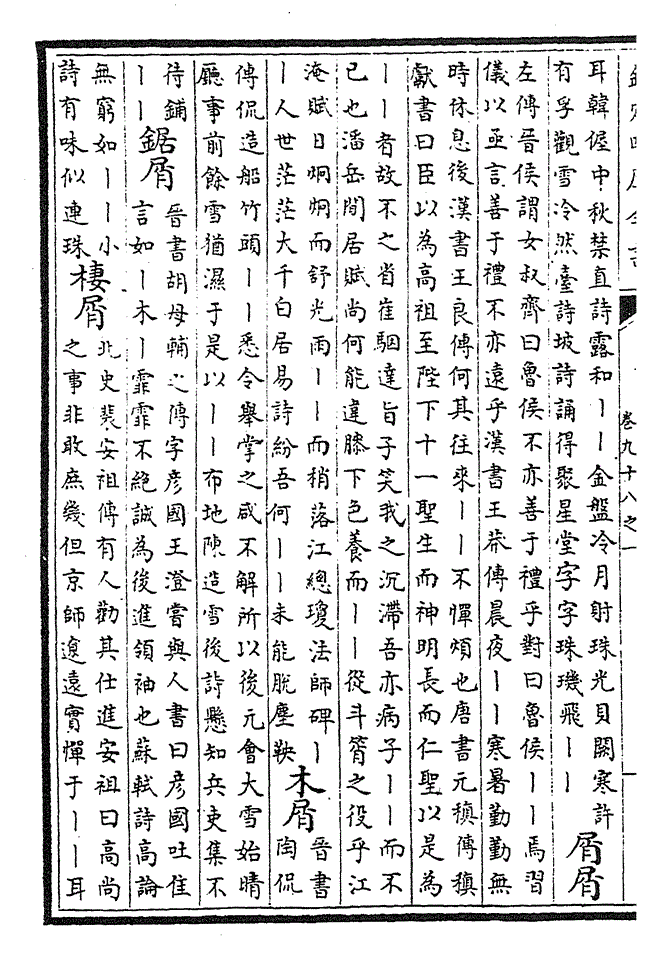 卷九十八之一
耳韓偓中秋禁直詩露和丨丨金盤冷月射珠光貝闕寒許
有孚觀雪冷然臺詩坡詩誦得聚星堂字字珠璣飛丨丨
屑屑
左傳晉侯謂女叔齊曰魯侯不亦善于禮乎對曰魯侯丨丨焉習
儀以亟言善于禮不亦遠乎漢書王莽傳晨夜丨丨寒暑勤勤無
時休息後漢書王良傳何其往來丨丨不憚煩也唐書元稹傳稹
獻書曰臣以為高祖至陛下十一聖生而神明長而仁聖以是為
丨丨者故不之省崔駰達旨子笑我之沉滯吾亦病子丨丨而不
已也潘岳閒居賦尚何能違膝下色養而丨丨從斗筲之役乎江
淹賦日炯炯而舒光雨丨丨而稍落江總瓊法師碑丨
丨人世茫茫大千白居易詩紛吾何丨丨未能脫塵鞅
木屑
晉書
陶侃
傳侃造船竹頭丨丨悉令舉掌之咸不解所以後元會大雪始晴
廳事前餘雪猶濕于是以丨丨布地陳造雪後詩懸知兵吏集不
待鋪
丨丨
鋸屑
晉書胡母輔之傳字彥國王澄嘗與人書曰彥國吐佳
言如丨木丨霏霏不絕誠為後進領袖也蘇軾詩高論
無窮如丨丨小
詩有味似連珠
棲屑
北史裴安祖傳有人勸其仕進安祖曰高尚
之事非敢庶幾但京師遼遠實憚于丨丨耳